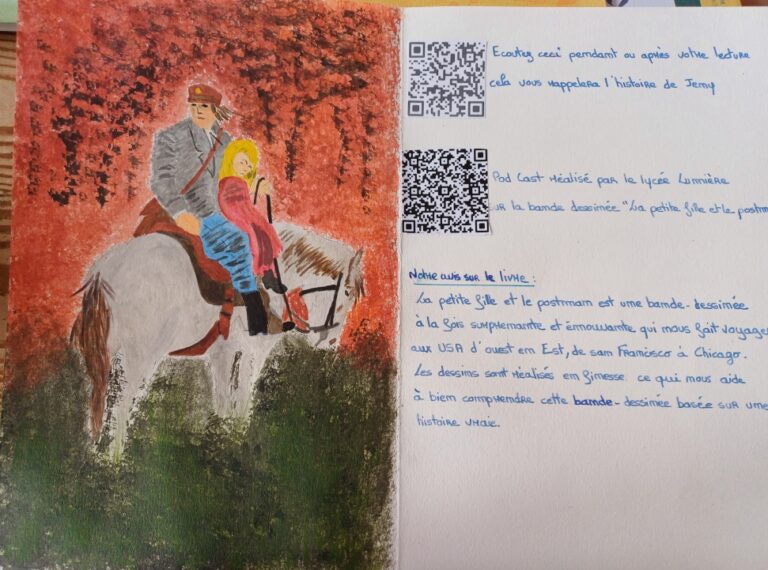 Ecoutez ceci pendant ou après votre lecture
cela vous rappelera l'histoire de Jenny
Pod Cast réalisé par le lycée Lummière
sur la bande dessimée "La petite fille et le postm
Notre avis sur le livre :
La petite fille et le postman est une bande-dessimée
à la fois surprenante et émouvante qui nous fait voyage
aux USA d'ouest en Est, de san Francisco à Chicago.
Les dessins sont réalisés en finesse ce qui nous aide
à bien comprendre cette bande-dessimée basée sur une
histoire vraie.